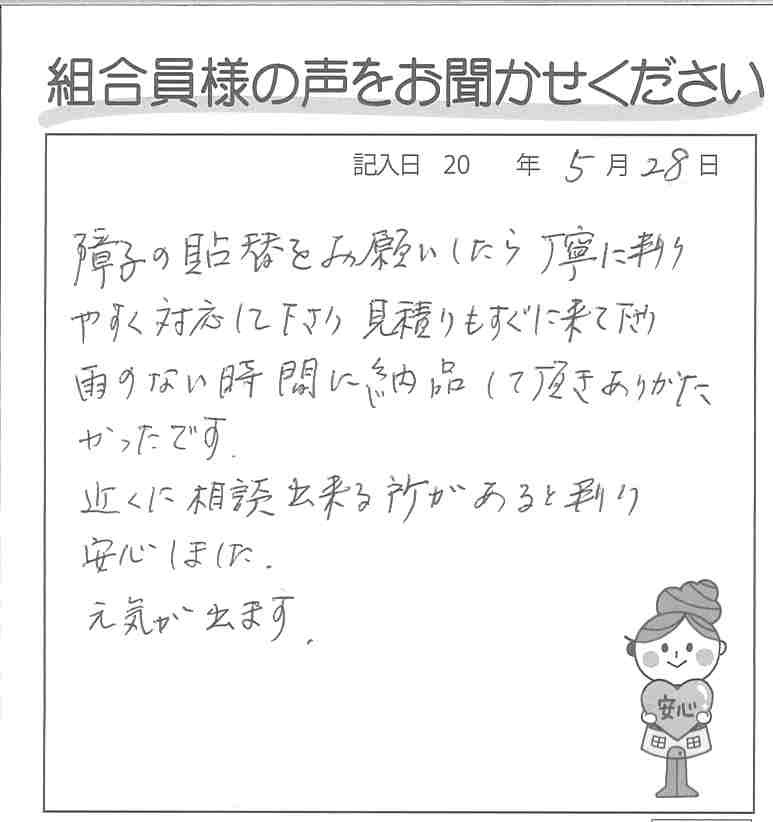 組合員様の声をお聞かせください
記入日 20 年 5月28日
障子の貼替をお願いしたら丁寧に判り
やすく対応して下さり見積りもすぐに来て下さり
雨のない時間に納品して頂きありがた
かったです.
近くに相談出来る所があると判り
安心しました.
元気が出ます.
安心